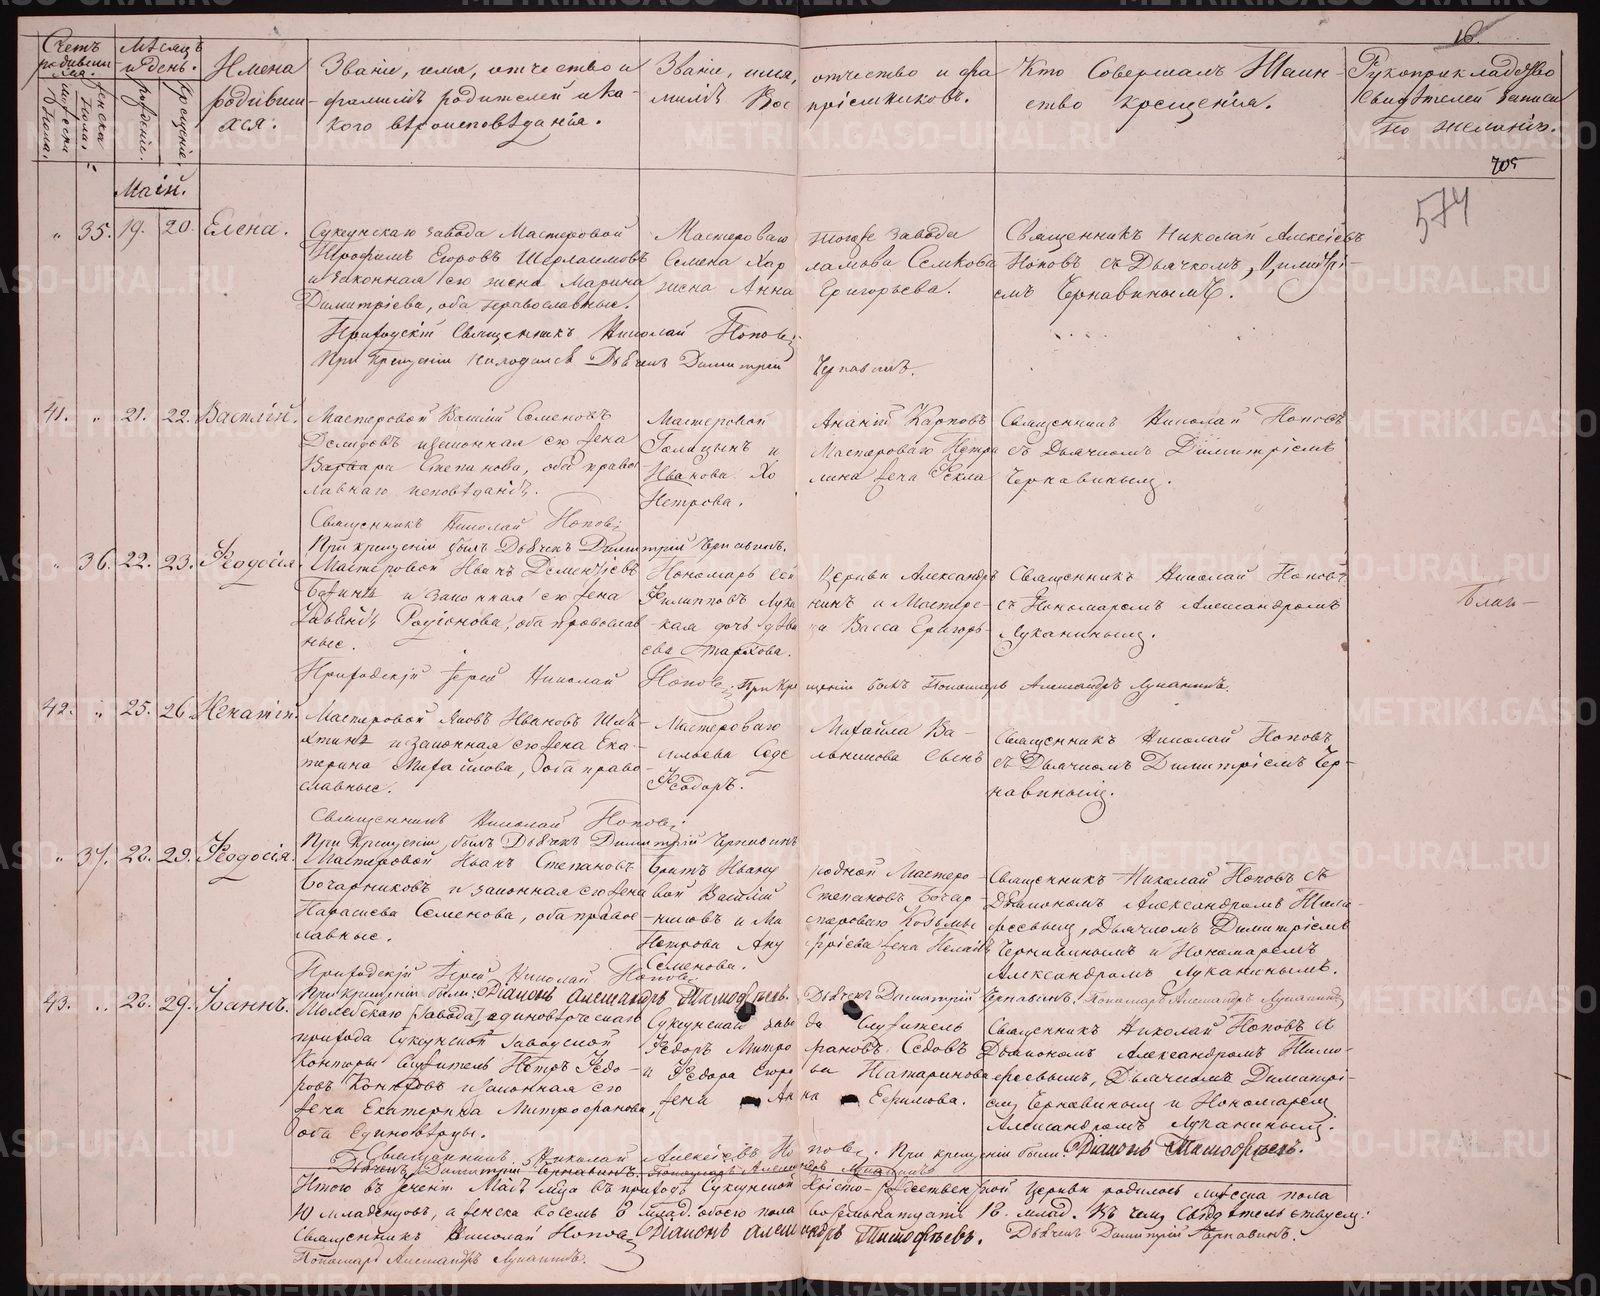 16.
Счетъ родившихся. мужеска пола. женска пола.
Мѣсяцъ и день. рожденія. крещенія.
Имена родившихся.
Званіе, имя, отчество и фамилія родителей и какого вѣроисповѣданія.
Званіе, имя, отчество и фамилія Воспріемниковъ.
Кто Совершалъ Таинство крещенія.
Рукоприкладство Свидѣтелей записи по желанію.
705
574
Маій.
" 35. 19. 20. Елена.
Суксунскаго завода Мастеровой
Трофимъ Егоровъ
и законная его жена Марина
Димитріева, оба православные.
Мастероваго тогоже завода
Семена Харламова Семкова
жена Анна Григорьева.
Священникъ Николай Алексіевъ
Поповъ съ Дьячкомъ Димитріемъ
Чернавинымъ.
Приходскій Священникъ Николай Поповъ
При крещеніи находился Дьячекъ Димитрій Чернавинъ.
41. " 21. 22. Василій.
Мастеровой Василій Семеновъ
Демидовъ и законная его жена
Варвара Степанова, оба православнаго исповѣданія.
Мастеровой Ананій Карповъ
Голицынъ и Мастероваго Петра
Иванова Холина жена Фекла
Петрова.
Священникъ Николай Поповъ
съ Дьячкомъ Димитріемъ
Чернавинымъ.
Священникъ Николай Поповъ
При крещеніи былъ Дьячекъ Димитрій Чернавинъ.
" 36. 22. 23. Феодосія.
Мастеровой Иванъ Дементьевъ
и законная его жена
Родіонова, оба православные.
Пономарь сей Церкви Александръ
Филипповъ Луканинъ и Мастерская дочь дѣвица Васса Григорьева
Священникъ Николай Поповъ
съ Пономаремъ Александромъ
Луканинымъ.
Благо-
Приходскій Іерей Николай Поповъ. При крещеніи былъ Пономарь Александръ Луканинъ.
42. " 25. 26.
Мастеровой Яковъ Ивановъ
и законная его жена Екатерина Михайлова, оба православные.
Мастероваго Михайла
сынъ
Феодоръ.
Священникъ Николай Поповъ
съ Дьячкомъ Димитріемъ Чернавинымъ.
Священникъ Николай Поповъ
При крещеніи былъ Дьячекъ Димитрій Чернавинъ
" 37. 28. 29. Феодосія.
Мастеровой Иванъ Степановъ
Бочарниковъ и законная его жена
Параскева Семенова, оба православные.
Братъ Ивану родной Мастеровой Василій Степановъ Бочарниковъ и Мастероваго Козьмы
Петрова жена Пелагія
Семенова.
Священникъ Николай Поповъ съ
Діакономъ Александромъ Тимофеевымъ, Дьячкомъ Димитріемъ
Чернавинымъ и Пономаремъ
Александромъ Луканинымъ.
Приходскій Іерей Николай Поповъ
При крещеніи были: Діаконъ Александръ Тимофѣевъ. Дьячекъ Димитрій Чернавинъ. Пономарь Александръ Луканинъ
43. " 28. 29. Іоаннъ.
завода, единовѣрческаго
прихода Суксунской Заводской
Конторы Служитель Петръ Федоровъ и законная его
жена Екатерина Митрофанова,
оба Единовѣрцы.
Суксунскаго завода Служитель
Федоръ Митрофановъ Седовъ
и Федора Егорова Татаринова
жена Анна Ефимова.
Священникъ Николай Поповъ съ
Діакономъ Александромъ Тимофеевымъ, Дьячкомъ Димитріемъ Чернавинымъ и Пономаремъ
Александромъ Луканинымъ.
Священникъ Николай Алексіевъ Поповъ. При крещеніи были: Діаконъ Тимофѣевъ.
Дьячекъ Димитрій Чернавинъ. Пономарь Александръ Луканинъ
Итого въ теченіи Маія мѣсяца въ приходѣ Суксунской Христо-Рождественской Церкви родилось мужеска пола
10 младенцовъ, а женска восемь 8 млад. обоего пола восемьнатцать 18. млад. Въ чемъ свидѣтельствуемъ:
Священникъ Николай Поповъ Діаконъ Александръ Тимофѣевъ. Дьячекъ Димитрій Чернавинъ.
Пономарь Александръ Луканинъ.
METRIKI.GASO-URAL.RU